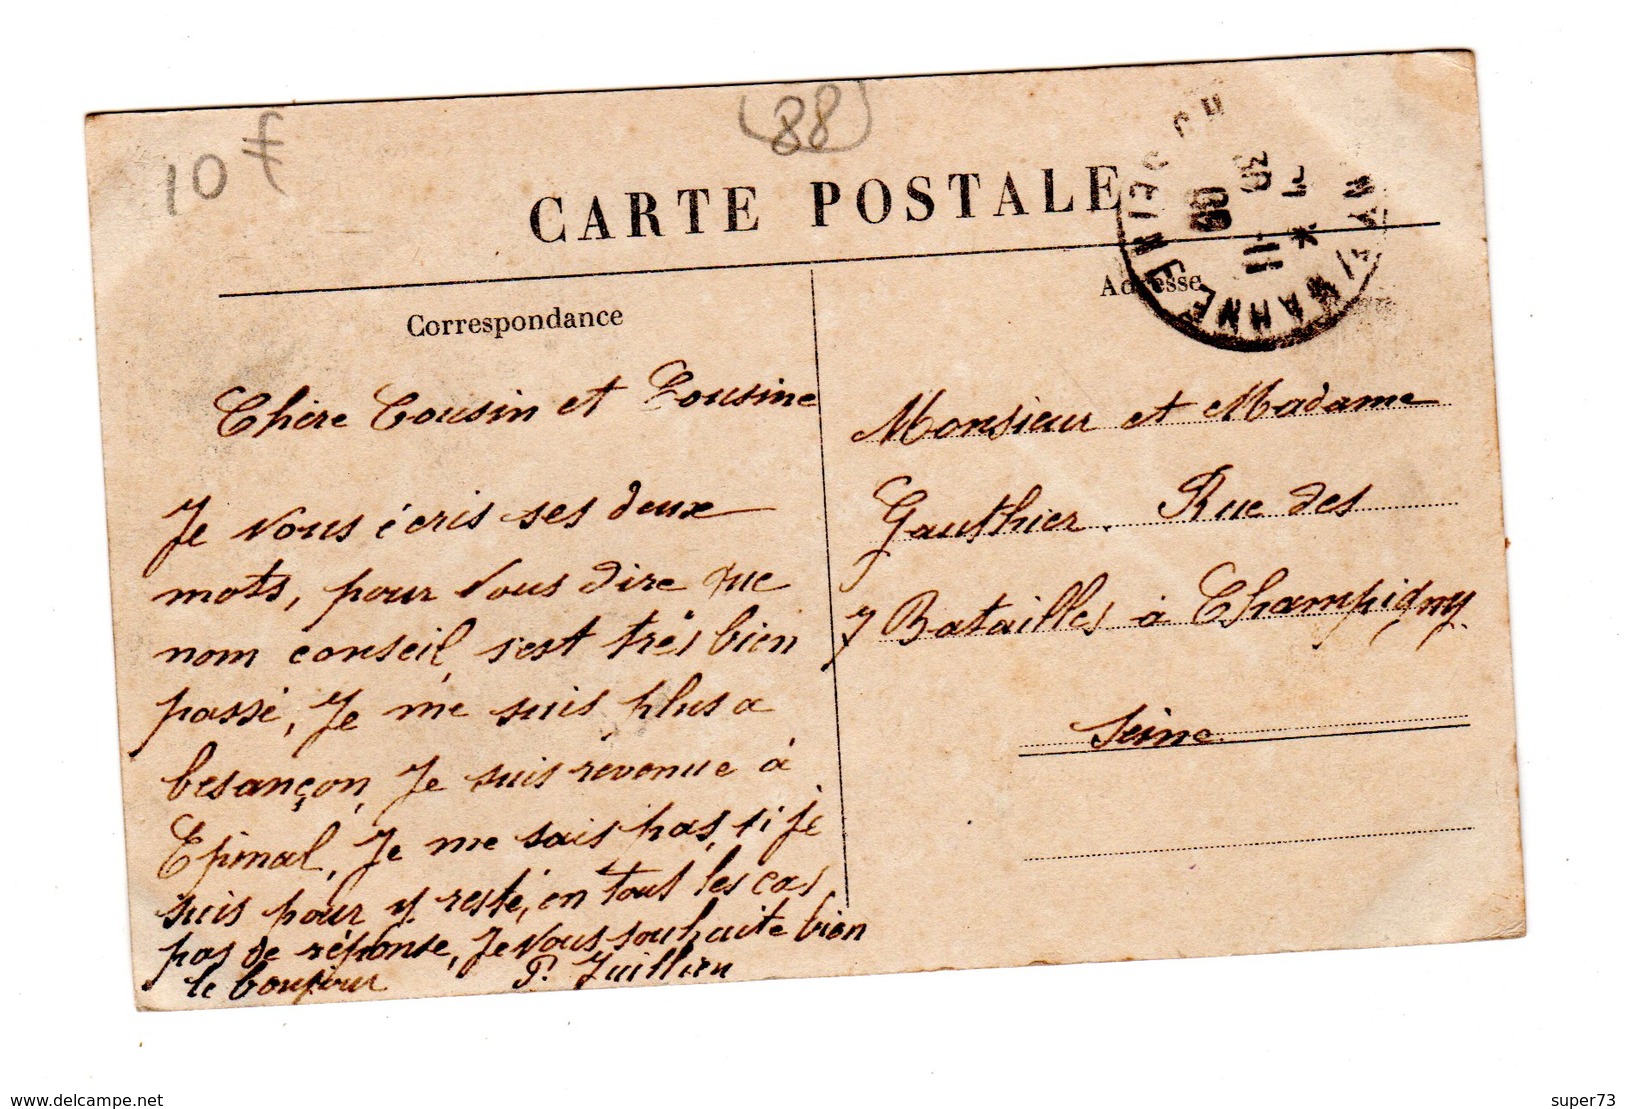 10 f
88
CARTE POSTALE
Correspondance
Adresse
Chère Cousin et Cousine
Je vous écris ses deux
mots, pour vous dire que
nom conseil s'est très bien
passé, Je me suis plus a
besançon, Je suis revenue à
Epinal, Je me sais pas, si je
suis pour y resté, en tout les cas
pas de réponse, Je vous souhaite bien
le bonjour P. Juillien
Monsieur et Madame
Gauthier. Rue des
7 Batailles à Champigny
Seine
www.delcampe.net
super73